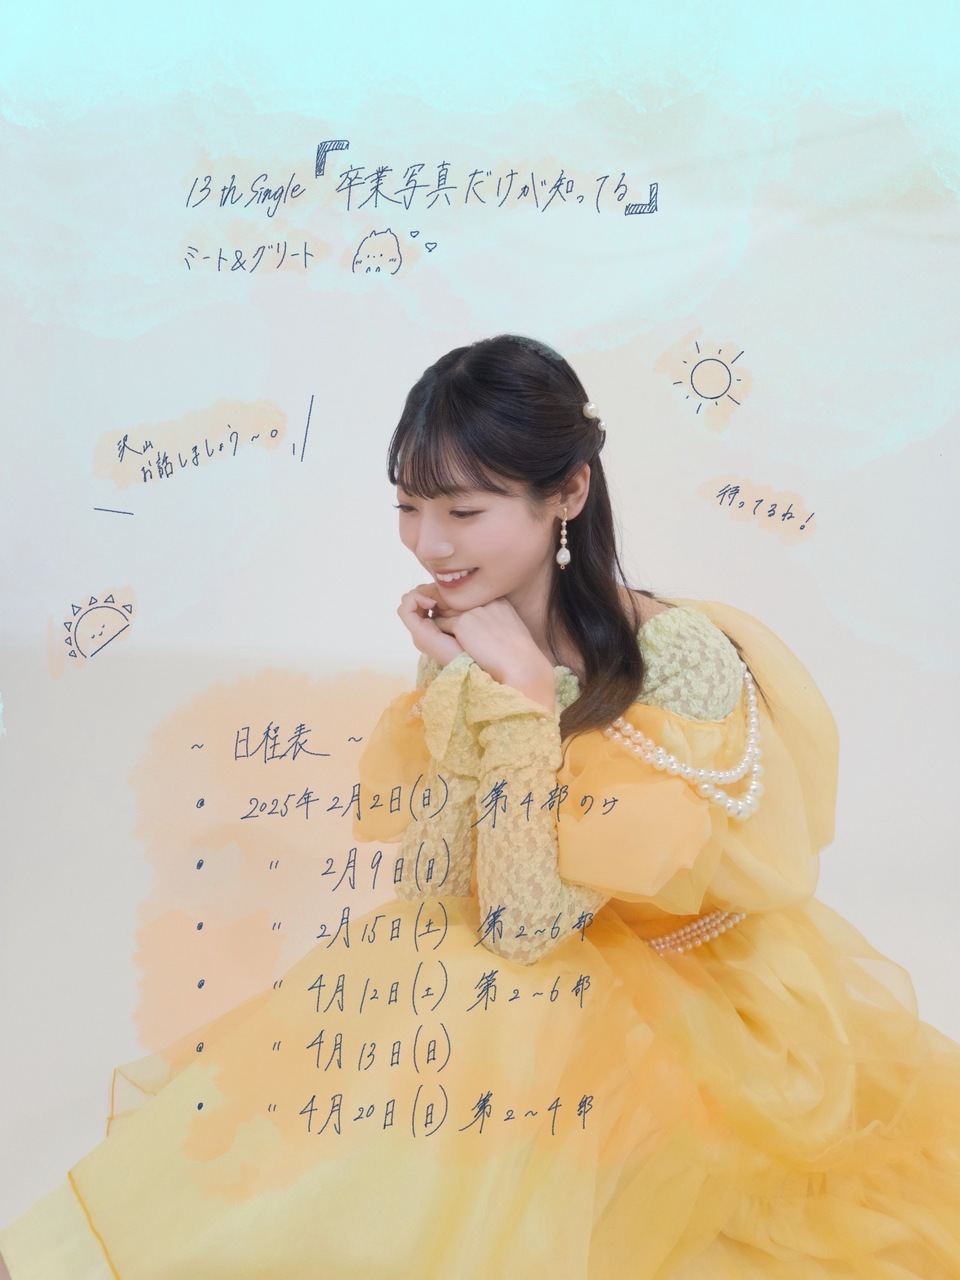 13th Single『卒業写真だけが知ってる』
ミート&グリート
沢山
お話しましょう〜。
待ってるね!
~ 日程表 ~
• 2025年2月2日(日) 第4部のみ
• 〃 2月9日(日)
• 〃 2月15日(土) 第2~6部
• 〃 4月12日(土) 第2~6部
• 〃 4月13日(日)
• 〃 4月20日(日) 第2~4部